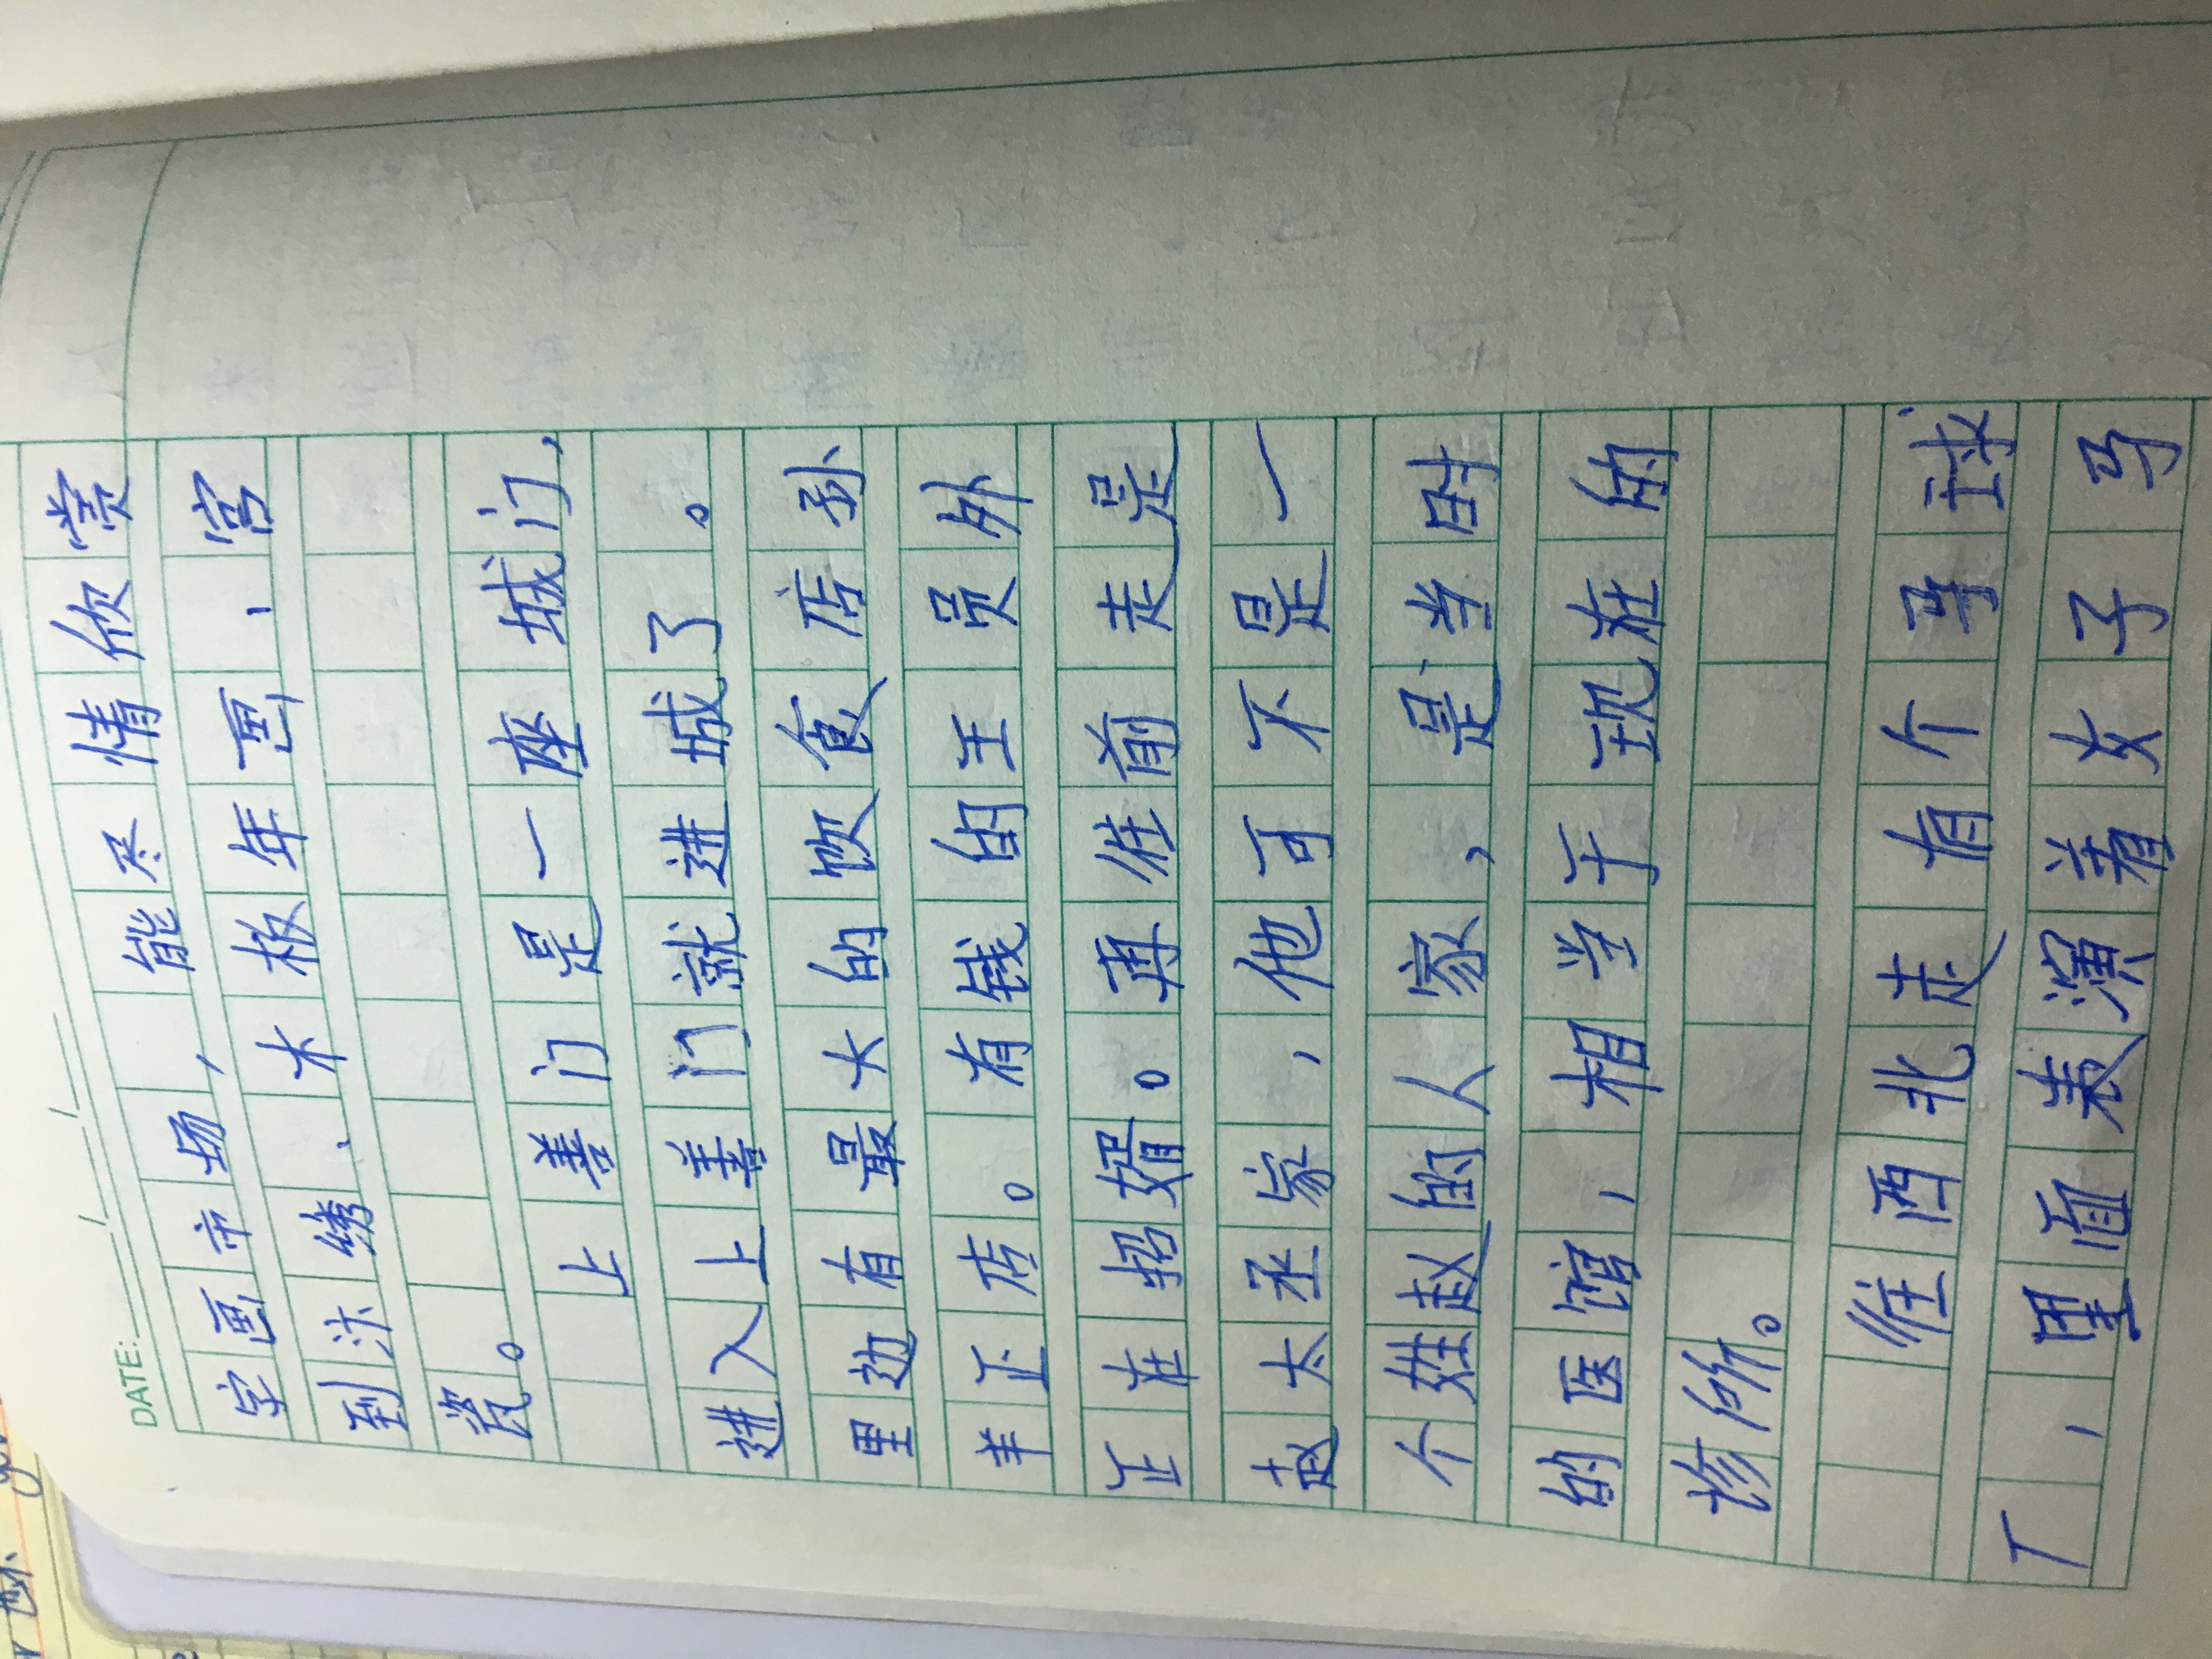 DATE:
字画市场,能尽情欣赏
到汴绣、木板年画、宫
瓷。
上善门是一座城门,
进入上善门就进城了。
里边有最大的饮食店孙
羊正店。有钱的王员外
正在招婿。再往前走是
赵太丞家,他可不是一
个姓赵的人家,是当时
的医馆,相当于现在的
诊所。
往西北走有个马球
厂,里面表演着女子马